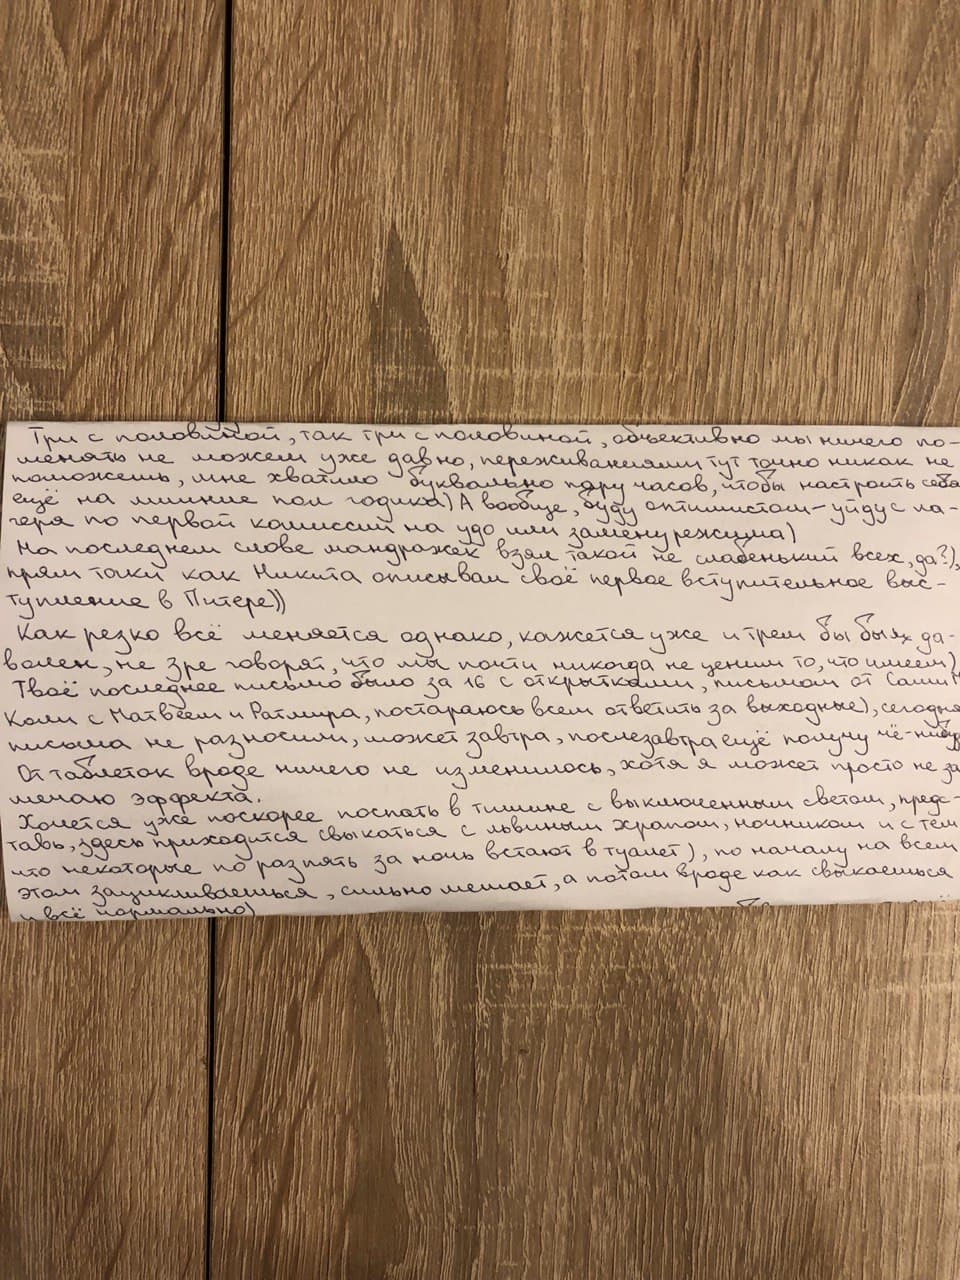 Три с половиной, так три с половиной, объективно мы ничего по-
менять не можем уже давно, переживаниями тут точно никак не
поможешь, мне хватило буквально пару часов, чтобы настроить себя
ещё на лишние пол годика) А вообще, буду оптимистом - уйду с ла-
геря по первой комиссии на удо или замену режима)
На последнем слове мандражек взял такой не слабенький всех, да?),
прям точки как Никита описывал своё первое вступительное выс-
тупление в Питере))
Как резко всё меняется однако, кажется уже и трем бы был да-
волен, не зре говорят, что мы почти никогда не ценим то, что имеем)
Твоё последнее письмо было за 16 с открытками, письмом от Саши
Коли с Матвеем и Ратмира, постараюсь всем ответить за выходные), сегодня
письма не разносили, может завтра, послезавтра ещё получу чё-нибудь
От таблеток вроде ничего не изменилось, хотя я может просто не за
мечаю эффекта.
Хочется уже поскорее поспать в тишине с выключенным светом, предс-
тавь, здесь приходится свыкаться с львиным храпом, ночником и с тем
что некоторые по раз пять за ночь встают в туалет), по началу на всем
этом зацикливаешься, сильно мешает, а потом вроде как свыкаешься
и всё нормально)